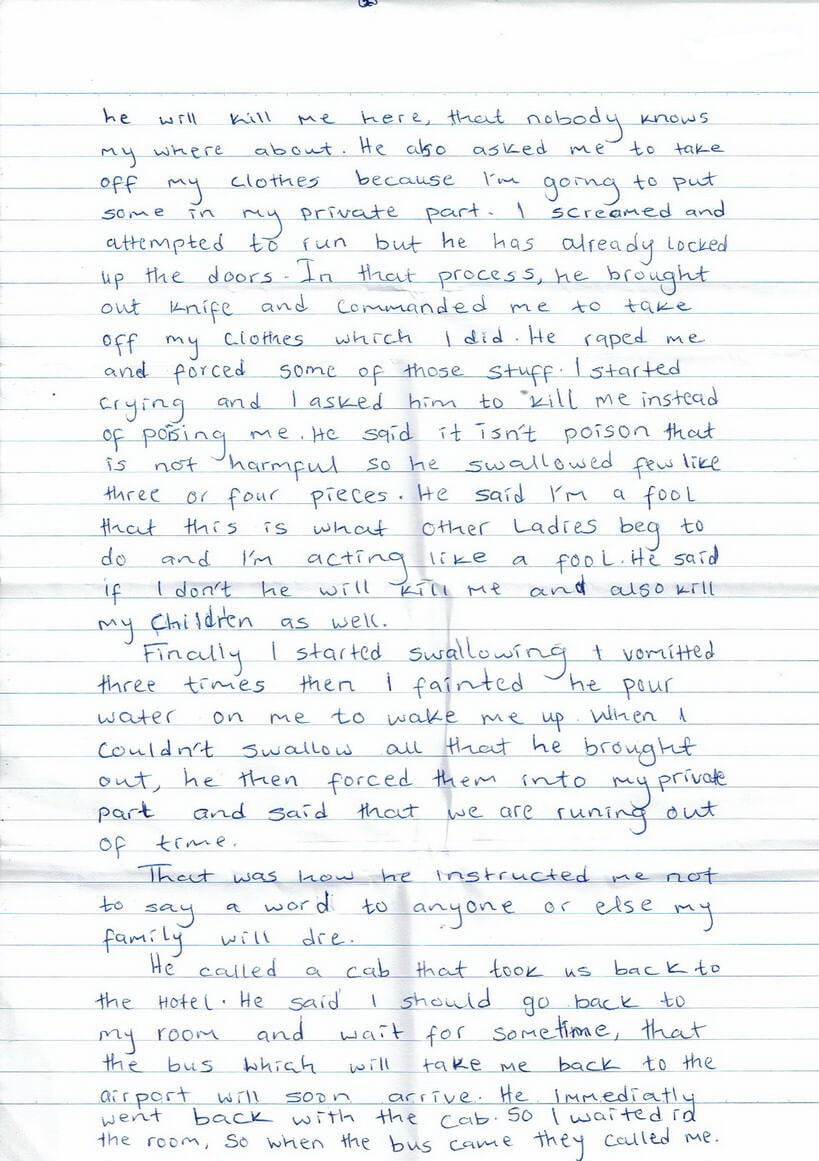 he will kill me here, that nobody knows
my where about. He also asked me to take
off my clothes because I'm going to put
some in my private part. I screamed and
attempted to run but he has already locked
up the doors. In that process, he brought
out knife and commanded me to take
off my clothes which I did. He raped me
and forced some of those stuff. I started
crying and I asked him to kill me instead
of poising me. He said it isn't poison that
is not harmful so he swallowed few like
three or four pieces. He said I'm a fool
that this is what other ladies beg to
do and I'm acting like a fool. He said
if I don't he will kill me and also kill
my children as well.
Finally I started swallowing I vomitted
three times then I fainted he pour
water on me to wake me up. When I
couldn't swallow all that he brought
out, he then forced them into my private
part and said that we are runing out
of time.
That was how he instructed me not
to say a word to anyone or else my
family will die.
He called a cab that took us back to
the Hotel. He said I should go back to
my room and wait for sometime, that
the bus which will take me back to the
airport will soon arrive. He immediatly
went back with the cab. So I waited in
the room, so when the bus came they called me.